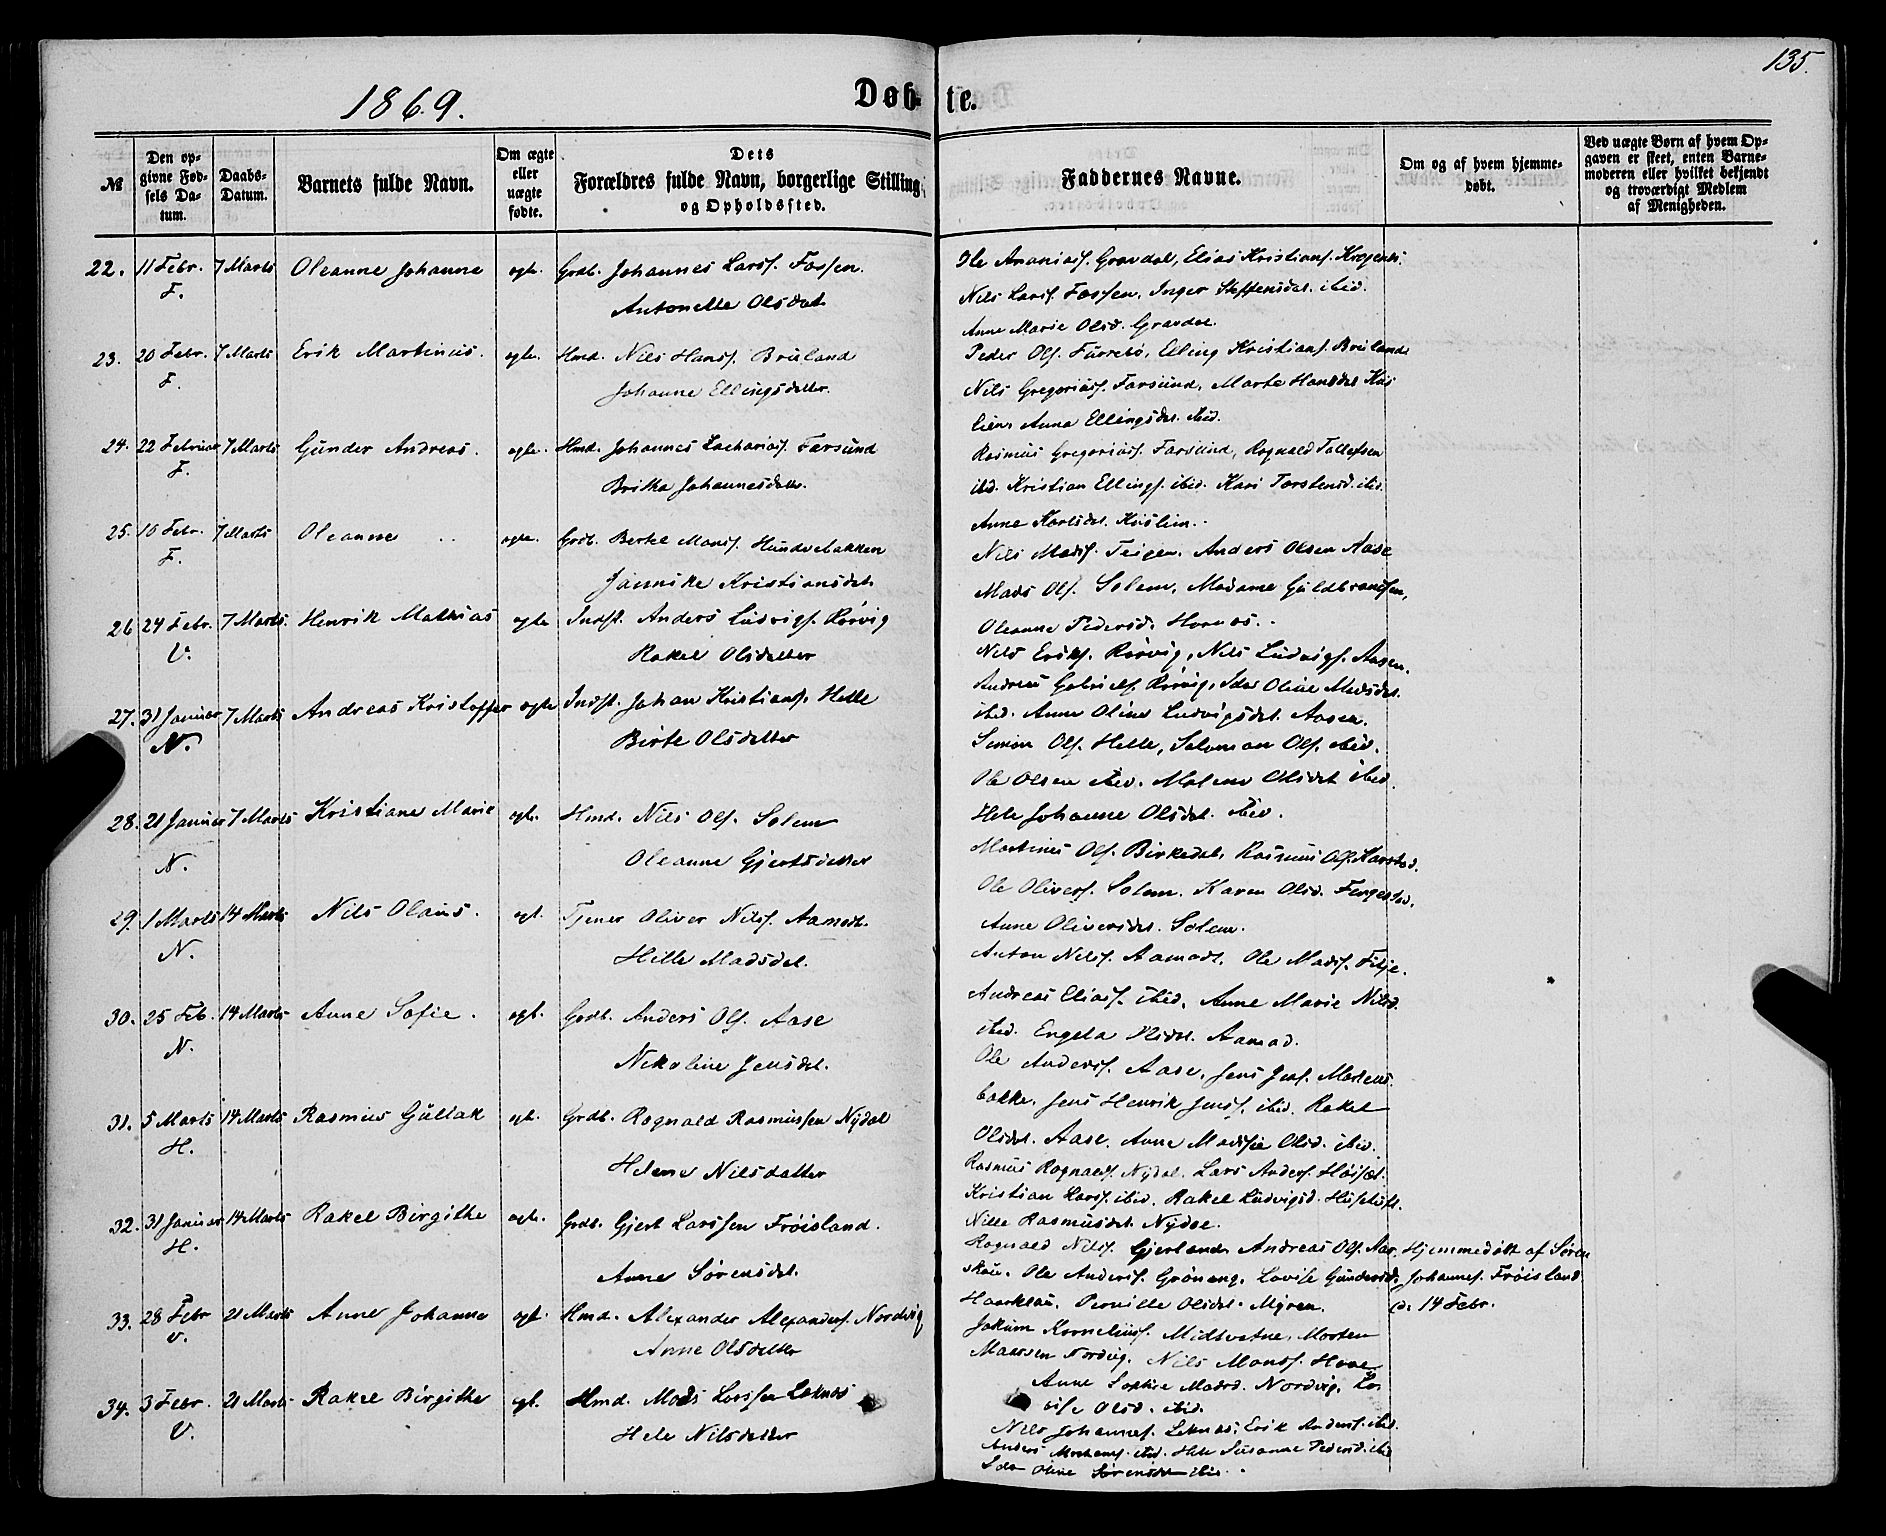 135.
1869.
Døbte.
№
Den opgivne Fødsels Datum.
Daabs-Datum.
Barnets fulde Navn.
Om ægte eller uægte fødte.
Dets Forældres fulde Navn, borgerlige Stilling og Opholdssted.
Faddernes Navne.
Om og af hvem hjemmedøbt.
Ved uægte Børn af hvem Opgaven er skeet, enten Barnemoderen eller hvilket bekjendt og troværdigt Medlem af Menigheden.
22. 11 Febr. 7 Marts Oleanne Johanne ægte. Grdb. Johannes Larss. Fossen.
F. Antonette Olsdat
Ole Ananiass. Gravdal, Elias Kristians.
Nils Larss. Fossen, Inger Steffensdat. ibid.
Anne Marie Olsd. Gravdal.
23. 20 Febr. 7 Marts Erik Martinus. ægte. Hmd. Nils Hanss. Bruland
F. Johanne Ellingsdatter.
Peder Ols. Furrebø, Elling Kristians. Brulande
Nils Gregoriass. Farsund, Marte Hansdat
Anna Ellingsdat. ibid.
24. 22 Februar 7 Marts Gunder Andreas. ægte. Hmd. Johannes Zachariass. Farsund
F. Britha Johannesdatt.
Rasmus Gregoriass. Farsund, Rognald Tollefsen
ibd. Kristian Ellings. ibid. Kari Torstensd. ibid.
Anne Karlsdat.
25. 10 Febr. 7 Marts Oleanne ægte. Grdb. Bertel Monss. Hundvebakken
F. Jannike Kristiansdat.
Nils Madss. Teigen. Anders Olsen Aase
Mads Ols. Solem, Madame Guldbrandsen,
Oleanne Pedersd. Hornes.
26 24 Febr. 7 Marts. Henrik Mathias ægte Indst. Anders Ludvigs. Rørvig
V. Rakel Olsdatter
Nils Eriks. Rørvig, Nils Ludvigs. Aasen.
Andreas Gabriels. Rørvig, Ida Oline Madsdat.
ibid. Anne Oline Ludvigsdat. Aasen.
27. 31 Januar 7 Marts Andreas Kristoffer ægte Indst. Johan Kristians. Helle
N. Birte Olsdatter
Simon Ols. Helle, Salomon Ols. ibid.
Ole Olsen ibid. Malene Olsdat ibid.
Hele Johanne Olsdat. ibid.
28. 21 Januar 7 Marts Kristiane Marie ægte. Hmd. Nils Ols. Solem
N. Oleanne Gjertsdatter
Martinus Ols. Birkedal, Rasmus Ols. Karstad.
Ole Olivers. Solem. Karen Olsd.
Anne Oliversdat. Solem.
29. 1 Marts 14 Marts Nils Olaus. ægt. Tjener Oliver Nilss. Aamodt.
N. Hille Madsdat.
Anton Nilss. Aamodt. Ole Madss. Fitje.
Andreas Eliass. ibid. Anne Marie Nilsd.
ibid. Engela Olsdat. Aamod.
30. 25 Feb. 14 Marts Anne Sofie. ægt. Grdb. Anders Ols. Aase
N. Nikoline Jensdat.
Ole Anderss. Aase, Jens Jens.
bakke. Jens Henrik Jenss. ibid. Rakel
Olsdat. Aase. Anne Olsd. ibid.
31. 5 Marts 14 Marts Rasmus Gullak ægt. Grdb. Rognald Rasmussen Nydal
H. Helene Nilsdatter
Rasmus Rognalds. Nydal. Lars Anders.
Kristian Larss. ibid. Rakel Ludvigsd.
Nille Rasmusdat. Nydal.
32. 31 Januar 14 Marts Rakel Birgithe ægte. Grdb. Gjert Larssen Frøisland.
H. Anne Sørensdat.
Rognald Nilss. Gjerland, Andreas Ols. Aar-
skou. Ole Anderss. Grønning. Lovise Gundersd.
Haarklau. Pernille Olsdat. Myren.
Hjemmedøbt af Søren
Johannes. Frøisland
d. 14 Febr.
33. 28 Febr 21 Marts Anne Johanne ægt. Hmd. Alexander Alexanders. Nordvig
V. Anne Olsdatter
Jokum Kornelius. Midtvatne. Morten
Madssen Nordvig. Nils Monss. Hove
Anne Sophie Madsd. Nordvig. Lo-
vise Olsd. ibid.
34. 3 Febr. 21 Marts Rakel Birgithe ægt. Hmd. Mads Larssen Leknes
V. Hele Nilsdatter
Nils Johannes. Leknes, Erik Anders. ibid.
Anders ibid. Hele Susanne Pedersd. ibid
Ida Oline Sørensdat ibid.